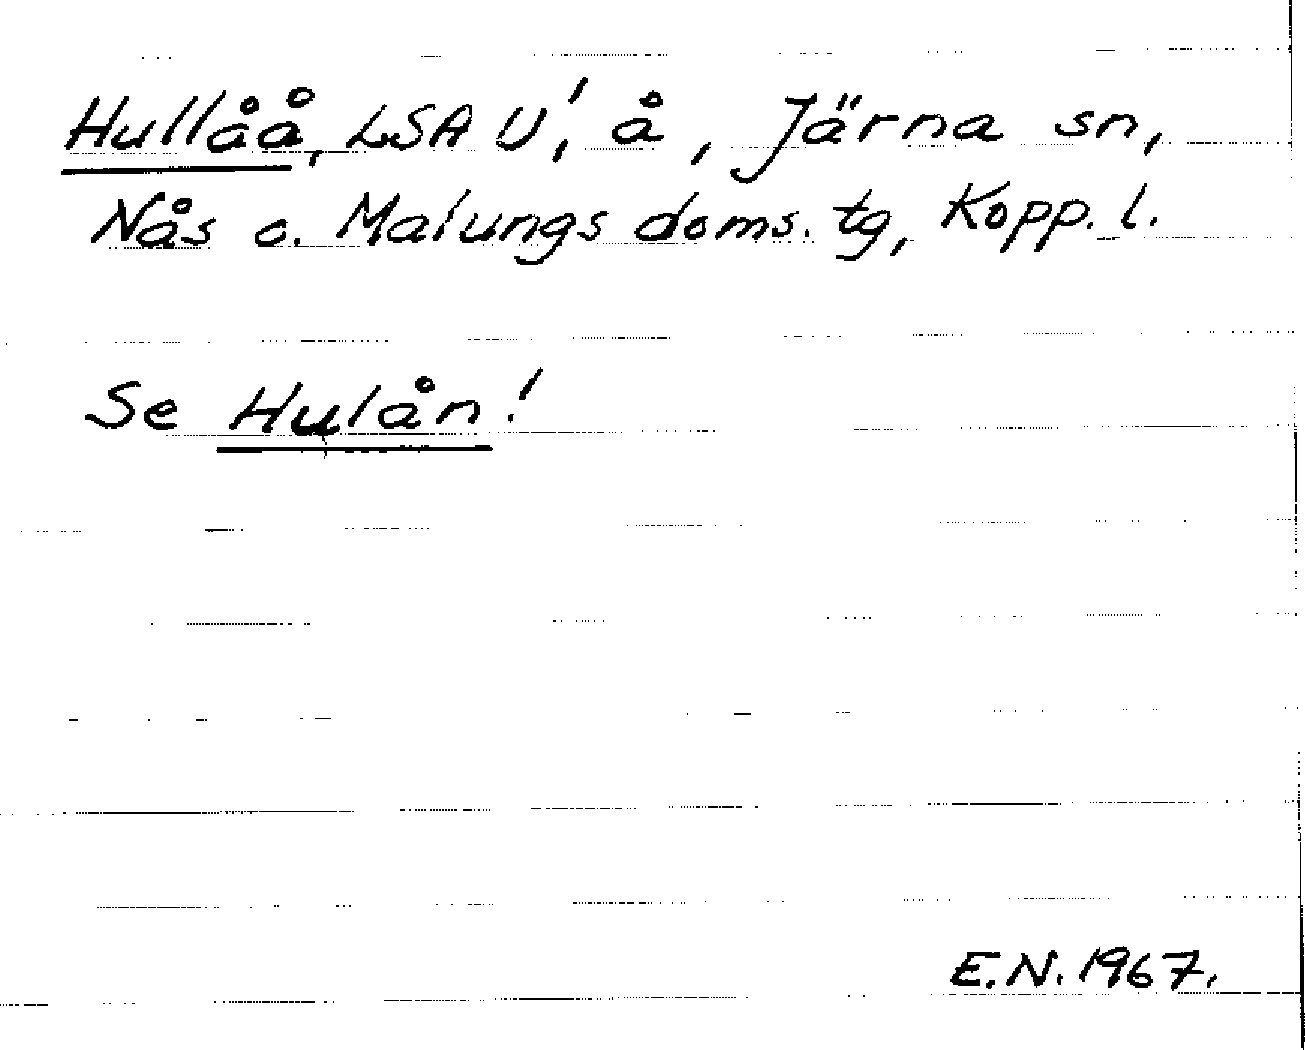 Hullåå, LSA U!, å, Järna sn,
Nås o. Malungs doms. tg, Kopp. l.
Se Hulån!
E.N. 1967.